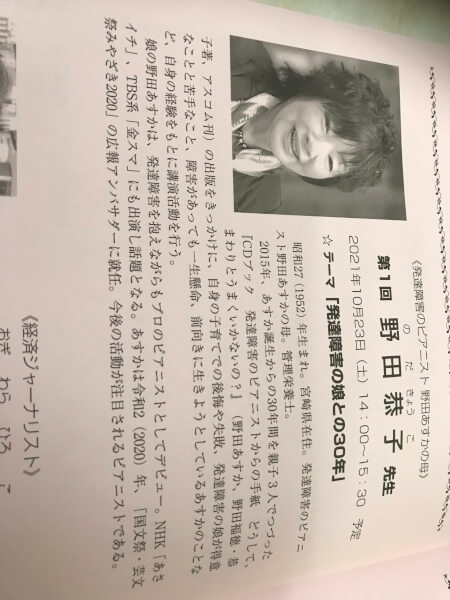 《発達障害のピアニスト 野田あすかの母》
の だ きょう こ
第1回 野田 恭子 先生
2021年10月23日(土) 14:00~15:30 予定
☆テーマ「発達障害の娘との30年」
昭和27(1952)年生まれ。宮崎県在住。発達障害のピアニ
スト野田あすかの母。管理栄養士。
2015年、あすか誕生からの30年間を親子3人でつづった
『CDブック 発達障害のピアニストからの手紙 どうして、
まわりとうまくいかないの?』(野田あすか、野田福徳・恭
子著、アスコム刊)の出版をきっかけに、自身の子育てでの後悔や失敗、発達障害の娘が得意
なことと苦手なこと、障害があっても一生懸命、前向きに生きようとしているあすかのことな
ど、自身の経験をもとに講演活動を行う。
娘の野田あすかは、発達障害を抱えながらもプロのピアニストとしてデビュー。NHK「あさ
イチ」、TBS系「金スマ」にも出演し話題となる。あすかは令和2(2020)年、「国文祭・芸文
祭みやざき2020」の広報アンバサダーに就任。今後の活動が注目されるピアニストである。
《経済ジャーナリスト》
おぎ わら ひろ こ